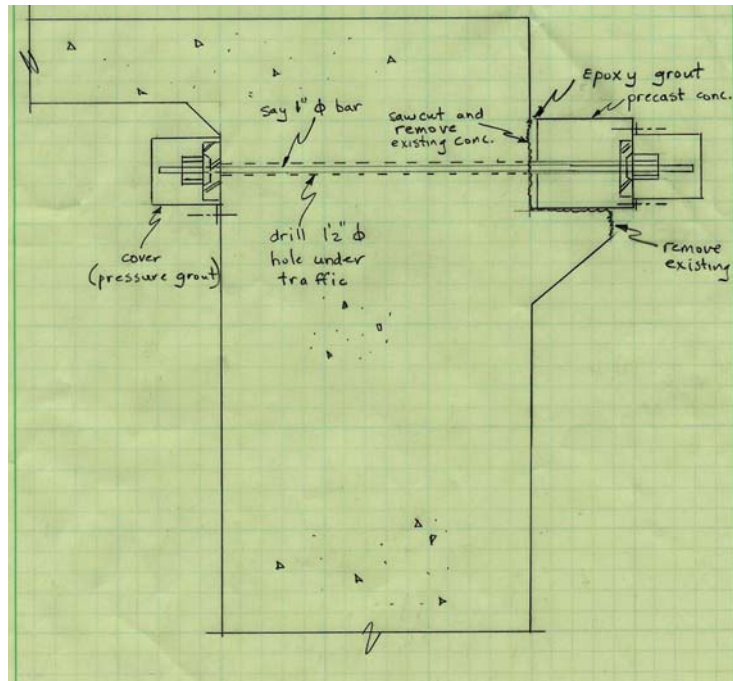 say 1" ϕ bar
sawcut and
remove
existing conc.
Epoxy grout
precast conc.
cover
(pressure grout)
drill 1½" ϕ
hole under
traffic
remove
existing